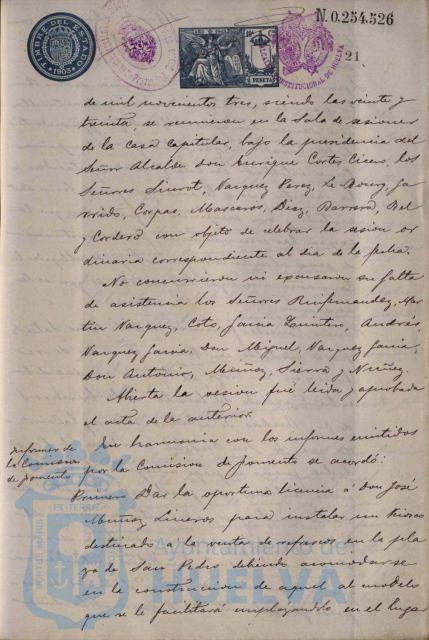 TIMBRE DEL ESTADO
1903
N.0.254.526
21
CONSTITUCIONAL DE HUELVA
de mil novecientos tres, siendo las veinte y
treinta, se reunieron en la Sala de sesiones
de la Casa Capitular, bajo la presidencia del
Señor Alcalde Don Enrique Cortés Cicero, los
Señores Siurot, Vazquez Perez, Le Bourg, Ga
rrido, Corpas, Mascaros, Diaz, Barrera, Bel
y Cordero con objeto de celebrar la sesion or
dinaria correspondiente al dia de la fecha.
No concurrieron ni excusaron su falta
de asistencia los Señores Ruifernandez, Mar
tin Vazquez, Coto, Garcia Quintero, Andrés,
Vazquez Garcia, Don Miguel, Vazquez Garcia,
Don Antonio, Muñoz, Sierra y Nuñez.
Abierta la sesion fué leida y aprobada
el acta de la anterior.
Informes de
la Comision
de fomento
En harmonia con los informes emitidos
por la Comision de fomento se acordó:
Primero Dar la oportuna licencia á Don José
Muñoz Lineros para instalar un Kiosco
destinado á la venta de refrescos en la pla
za de San Pedro debiendo acomodarse
en la construccion de aquel al modelo
que se facilitará emplazandolo en el lugar
Ayuntamiento de
HUELVA